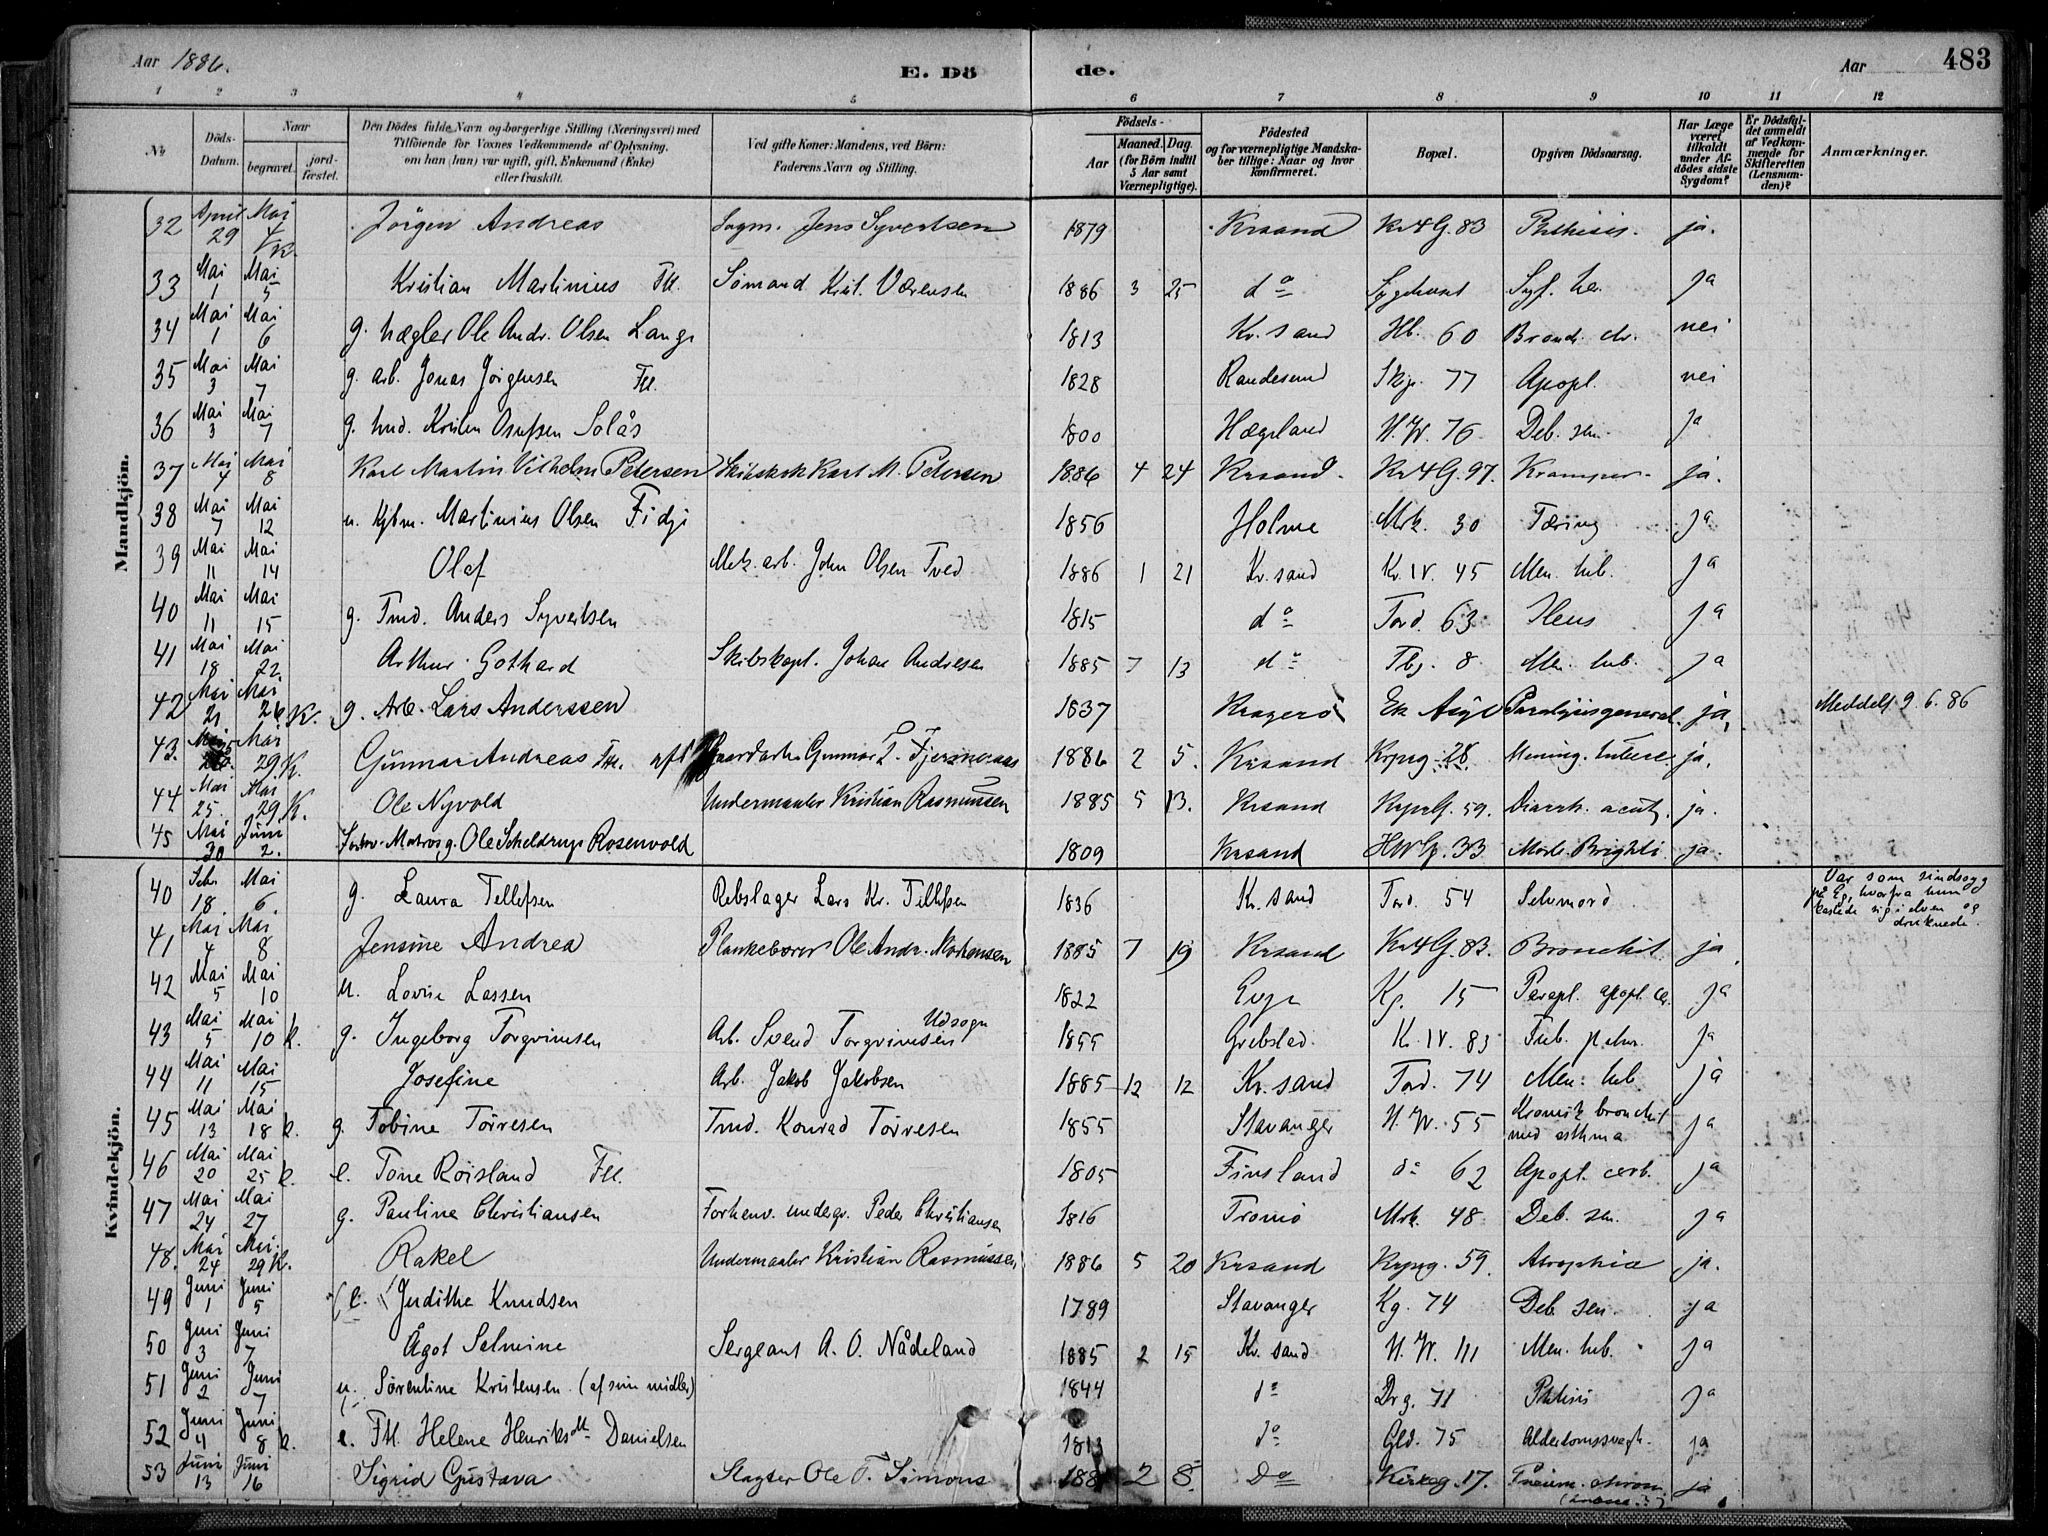 Aar 1886.
E. Dö de.
Aar
483
1 2 3 4 5 6 7 8 9 10 11 12
No
Döds-Datum.
Naar
begravet.
jord-fæstet.
Den Dödes fulde Navn og borgerlige Stilling (Næringsvei) med
Tilföiende for Voxnes Vedkommende af Oplysning,
om han (hun) var ugift, gift, Enkemand (Enke)
eller fraskilt.
Ved gifte Koner: Mandens, ved Börn:
Faderens Navn og Stilling.
Födsels-
Aar
Maaned. Dag.
(for Börn indtil
5 Aar samt
Værnepligtige).
Födested
og for værnepligtige Mandska-
ber tillige: Naar og hvor
konfirmeret.
Bopæl.
Opgiven Dödsaarsag.
Har Læge
været
tilkaldt
under Af-
dödes sidste
Sygdom?
Er Dödsfal-
det anmeldt
af Vedkom-
mende for
Skifteretten
(Lensman-
den)?
Anmærkninger.
Mandkjön.
32 April 29 Mai 4 K. Jörgen Andreas Sagm. Jens Syvertsen 1879 Krsand Kr4G. 83 Phthisis. ja.
33 Mai 1 Mai 5 Kristian Martinius Fll. Sömand Krist. Værensen 1886 3 25 do Sygehuset Syf. her. ja
34 Mai 1 Mai 6 g. Ole Andr. Olsen Lange 1813 Kr.sand Hb. 60 Bronch. chr. nei
35 Mai 3 Mai 7 g. arb. Jonas Jörgensen Fll. 1828 Randesund Skp. 77 Apopl. nei
36 Mai 3 Mai 7 g. Kristen Osufsen Solås 1800 Hægeland H. W. 76 Deb. sen. ja
37 Mai 4 Mai 8 Karl Martin Vilhelm Petersen Skibskok Karl M. Petersen 1886 4 24 Krsand. Kr4G. 97. Kramper. ja.
38 Mai 7 Mai 12 u. Kjbm. Martinius Olsen Fidje 1856 Holme Mrk. 30 Tæring ja
39 Mai 11 Mai 14 Olaf Mek. arb. John Olsen Tved 1886 1 21 Kr.sand Kr. IV. 45 Men. tub. ja
40 Mai 11 Mai 15 g. Tmd. Anders Syvertsen 1815 do Tord. 63 Ileus ja
41 Mai 18 Mai 22. Arthur Gothard Skibskapt. Johan Andresen 1885 7 13 do Tbg. 8 Men. tub. ja
42 Mai 21 Mai 26 K. g. Arb. Lars Anderssen 1837 Kragerö Ek Asyl Paralysis general. ja, Meddelt 9.6.86
43. Mai Mai 29 K. Gunnar Andreas Fll. Gaardarb. Gunnar T. Fjermeraas 1886 2 5. Krsand Krprg. 28. Mening. tuberc. ja.
44 Mai 25. Mai 29 K. Ole Nyvold Undermaaler Kristian Rasmussen 1885 5 13. Krsand KrprG. 59. Diarrh. acut. ja.
45 Mai 30 Juni 2. Forhv. Matros g. Ole Scheldrup Rosenvold 1809 Krsand HWG. 33 Morb. Brighti ja
Kvindekjön.
40 Feb. 18 Mai 6 g. Laura Tellefsen Rebslager Lars Kr. Tellefsen 1836 Kr.sand Tord. 54 Selvmord Var som sindssyg
på Eg, hvorfra hun
kastede sig i elven og
druknede.
41 Mai 4 Mai 8 Jensine Andrea Plankebærer Ole Andr. Mortensen 1885 7 19 Krsand Kr4G. 83. Bronchit. ja,
42 Mai 5 Mai 10 u. Lovise Lassen 1822 Evje Kg. 15 Parapl. apopl. ce. ja
43 Mai 5 Mai 10 k. g. Ingeborg Torgrimsen Arb. Svend Torgrimsen Udsogn 1855 Grebstad Kr. IV. 83 Tub. pulm. ja
44 Mai 11 Mai 15 Josefine Arb. Jakob Jakobsen 1885 12 12 Kr.sand Tord. 74 Men. tub. ja
45 Mai 13 Mai 18 k. g. Tobine Törresen Tmd. Konrad Törresen 1855 Stavanger H. W. 55 Kronisk bronchit
med asthma ja
46 Mai 20 Mai 25 k. e. Tone Röisland Fll. 1805 Finsland do 62 Apopl. cerb. ja
47 Mai 24 Mai 27 g. Pauline Christiansen Forhenv. undergr. Peder Christiansen 1816 Tromö Mrk. 48 Deb. sen. ja
48. Mai 24 Mai 29 K. Rakel Undermaaler Kristian Rasmussen 1886 5 20 Krsand Krprg. 59. Atrophia ja.
49 Juni 1 Juni 5 e. Judithe Knudsen 1789 Stavanger Kg. 74 Deb. sen. ja
50 Juni 3 Juni 7 Ågot Selmine Sergeant A. O. Nådeland 1885 2 15 Kr.sand H. W. 111 Men. tub. ja
51 Juni 2 Juni 7 u. Sörentine Kristensen (af sine midler) 1844 do Drg. 71 Phthisis ja
52 Juni 4 Juni 8 k. e. Fll. Helene Henriksdtr Danielsen 1813 do Gld. 75 Alderdomssvagh. ja
53 Juni 13 Juni 16 Sigrid Gustava Slagter Ole T. Simons 188 2 8. Do Kirkeg. 17. Pneum. chron. ja